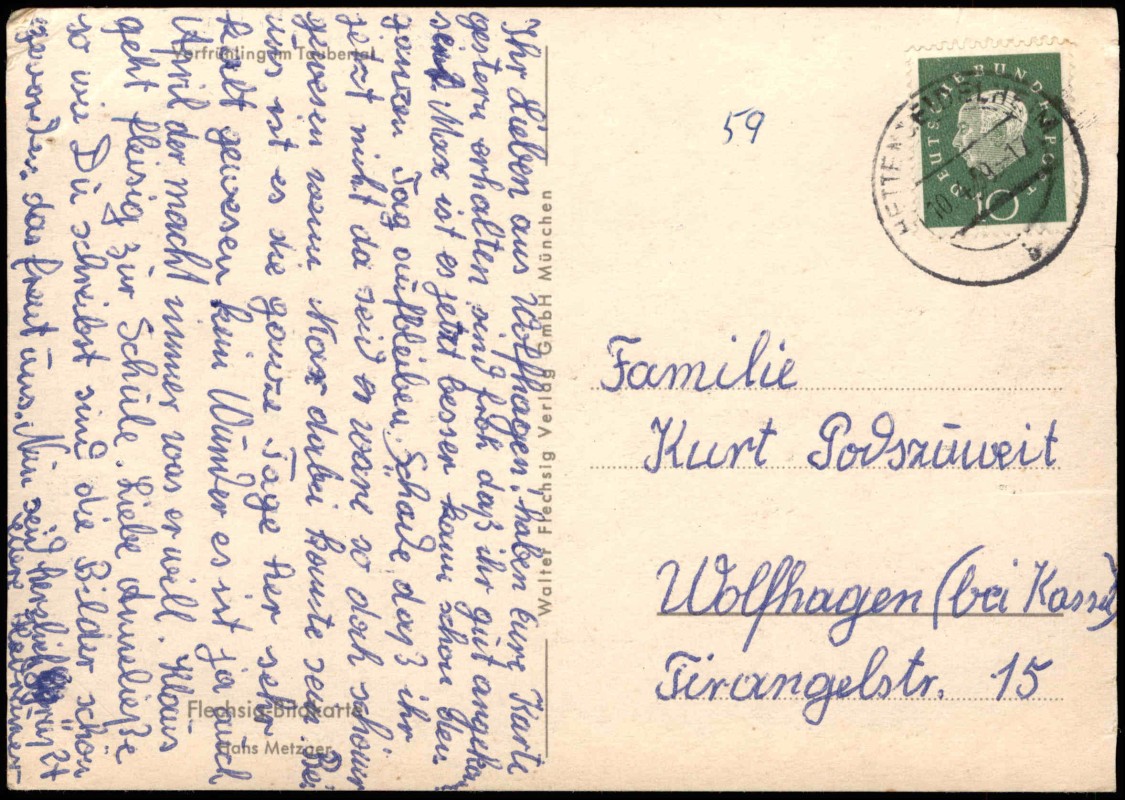 Vorfrühling im Taubertal
Ihr Lieben aus Wolfhagen, haben eure Karte
gestern erhalten sind froh daß ihr gut angekom
seid. Max ist es jetzt besser kann schon den
ganzen Tag aufbleiben. Schade, daß ihr
jetzt nicht da seid es wäre so doch schöner
gewesen wenn Max dabei konnte sein. Bei
uns ist es die ganze Tage her sehr
kalt gewesen kein Wunder es ist ja auch
April der macht immer was er will. Klaus
geht fleisig zur Schule. Liebe Anneließe
so wie Du schreibst sind die Bilder schön
geworden, das freut uns. Nun seid herzlich
Flechsig-Bildkarte
Hans Metzger
Walter Flechsig Verlag GmbH München
59
DEUTSCHE BUNDESPOST
10
Familie
Kurt Podszuweit
Wolfhagen (bei Kassel)
Tirangelstr. 15